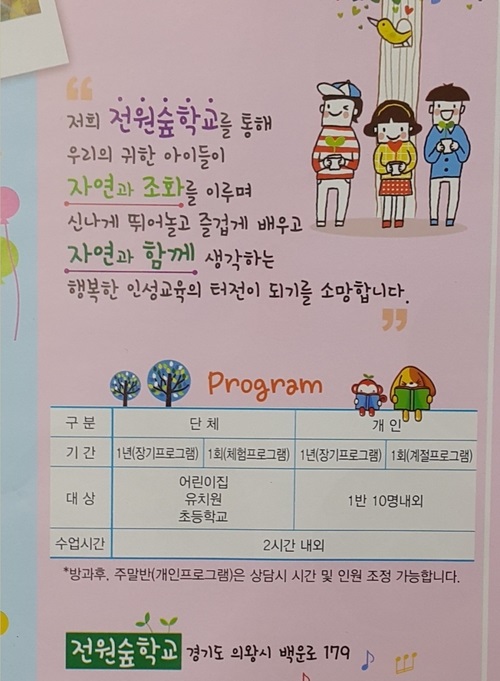 “
저희 전원숲학교를 통해
우리의 귀한 아이들이
자연과 조화를 이루며
신나게 뛰어놀고 즐겁게 배우고
자연과 함께 생각하는
행복한 인성교육의 터전이 되기를 소망합니다.
”
Program
구 분 단 체 개 인
기 간 1년(장기프로그램) 1회(체험프로그램) 1년(장기프로그램) 1회(계절프로그램)
대 상 어린이집
유치원
초등학교
1반 10명내외
수업시간 2시간 내외
*방과후, 주말반(개인프로그램)은 상담시 시간 및 인원 조정 가능합니다.
전원숲학교 경기도 의왕시 백운로 179